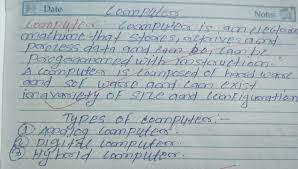 Date
Notes
Computer
Computer:- Coomputer is an electron
machine that stores, retrives and
process data and can be, can be
Programmed with instruction.
A computer is composed of hard ware
and sof ware and can exist
in a variety of size and configuration
Types of coomputer:-
① Analog Coomputer.
② Digital Coomputer.
③ Hybrid Coomputer.